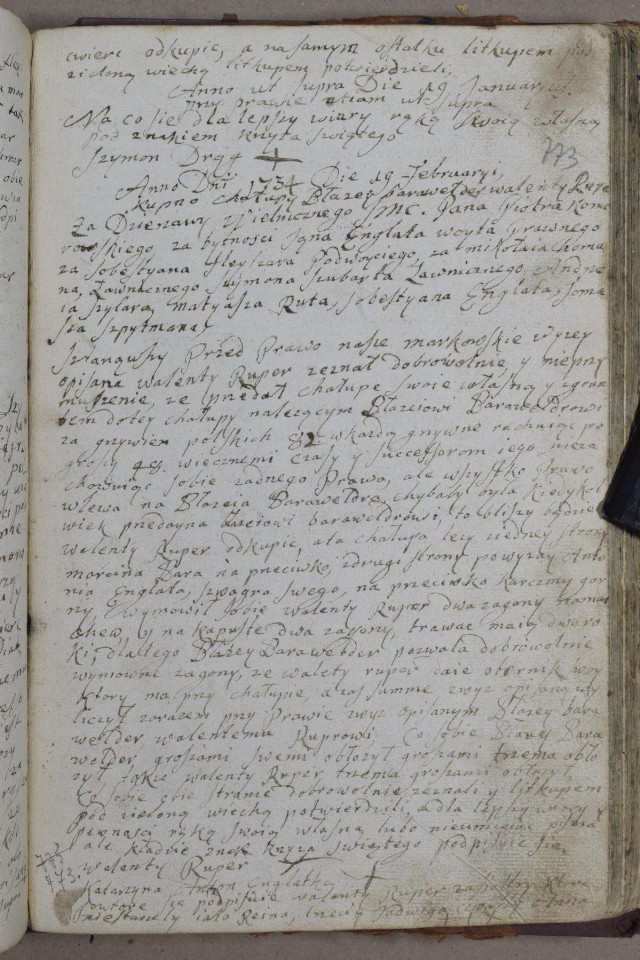 cwierc odkupic, a na samym ostatku litkupem pod
zieloną wiechą litkupem potwierdzieli,
Anno ut supra Die 19 Januarij
przy prawie etiam ut supra
Na co się dla lepszy wiary ręką swoią własną
pod znakiem krzyża swiętego
Szymon Dryg +
773
Anno Dni 1734 Die 19 Februaryi,
kupno chałupy Błazey Barawelder walenty Ruper
Za Dzierzawy Wielmoznego Jmc. Pana Piotra Komo
rowskiego, za bytnosci Jana Englata woyta Prawnego
za sobestyana Podwoyciego, za mikołaia
na, Ławnicznego Szymona Szubarta Ławnicznego, Andrze
ia Szylara, Matyasza Ruta, Sobestyana Englata, Toma
sza Szpytmana,
Stanąwszy Przed Prawo nasze markowskie wyzey
opisane walenty Ruper zeznał dobrowolnie y nieprzy
muszenie, ze przedał chałupe swoie własną y zgron
tem do tey chałupy nalezącym Błazeiowi Baraweldrowi
za grzywien polskich 82 w kazdą grzywne rachuiąc po
groszy 48. wiecznemi czasy y successorom iego, nieza
chowuiąc sobie zadnego Prawa, ale wszystko Prawo
wlewa na Błazeia Baraweldre, chybaby była kiedykol
wiek przedayna Błazeiowi baraweldrowi, to bliszy będzie
walenty Ruper odkupic, a ta chałupa lezy ziedney strony
morcina Bara na przeciwko, zdrugi strony powyzny Anto
nia Englata, szwagra swego, na przeciwko karczmy gor
ny Ewymowił sobie walenty Ruper dwa zagony
y na kapuste dwa zagony, trawac maią dwa ro
ki, dlatego Błazey Barawelder pozwala dobrowolnie
wymowne zagony, ze walety ruper daie
ktory ma przy chałupie, a tąz summe zwyz opisaną wy
liczył zarazem przy Prawie wyz opisanym Błazey bara
welder walentemu Ruprowi. Co sobie Błazey Bara
welder groszami swemi obłozył groszami trzema obło
zył takze walenty Ruper trzema groszami obłozył,
Co sobie obie stranie dobrowolnie zeznali y litkupem
pod zieloną wiechą potwierdzili, a dla lepszy wiary y
pewnosci ręką swoią własną lubo nieumieiem pisma
ale kładzie znak krzyza swiętego podpisuie sie.
walenty Ruper +
Katarzyna Anton Englatka +
sie podpisuie walenty Ruper za siostry ktore
niestaneły iako Reina, trzeciy Jadwiga, Anna